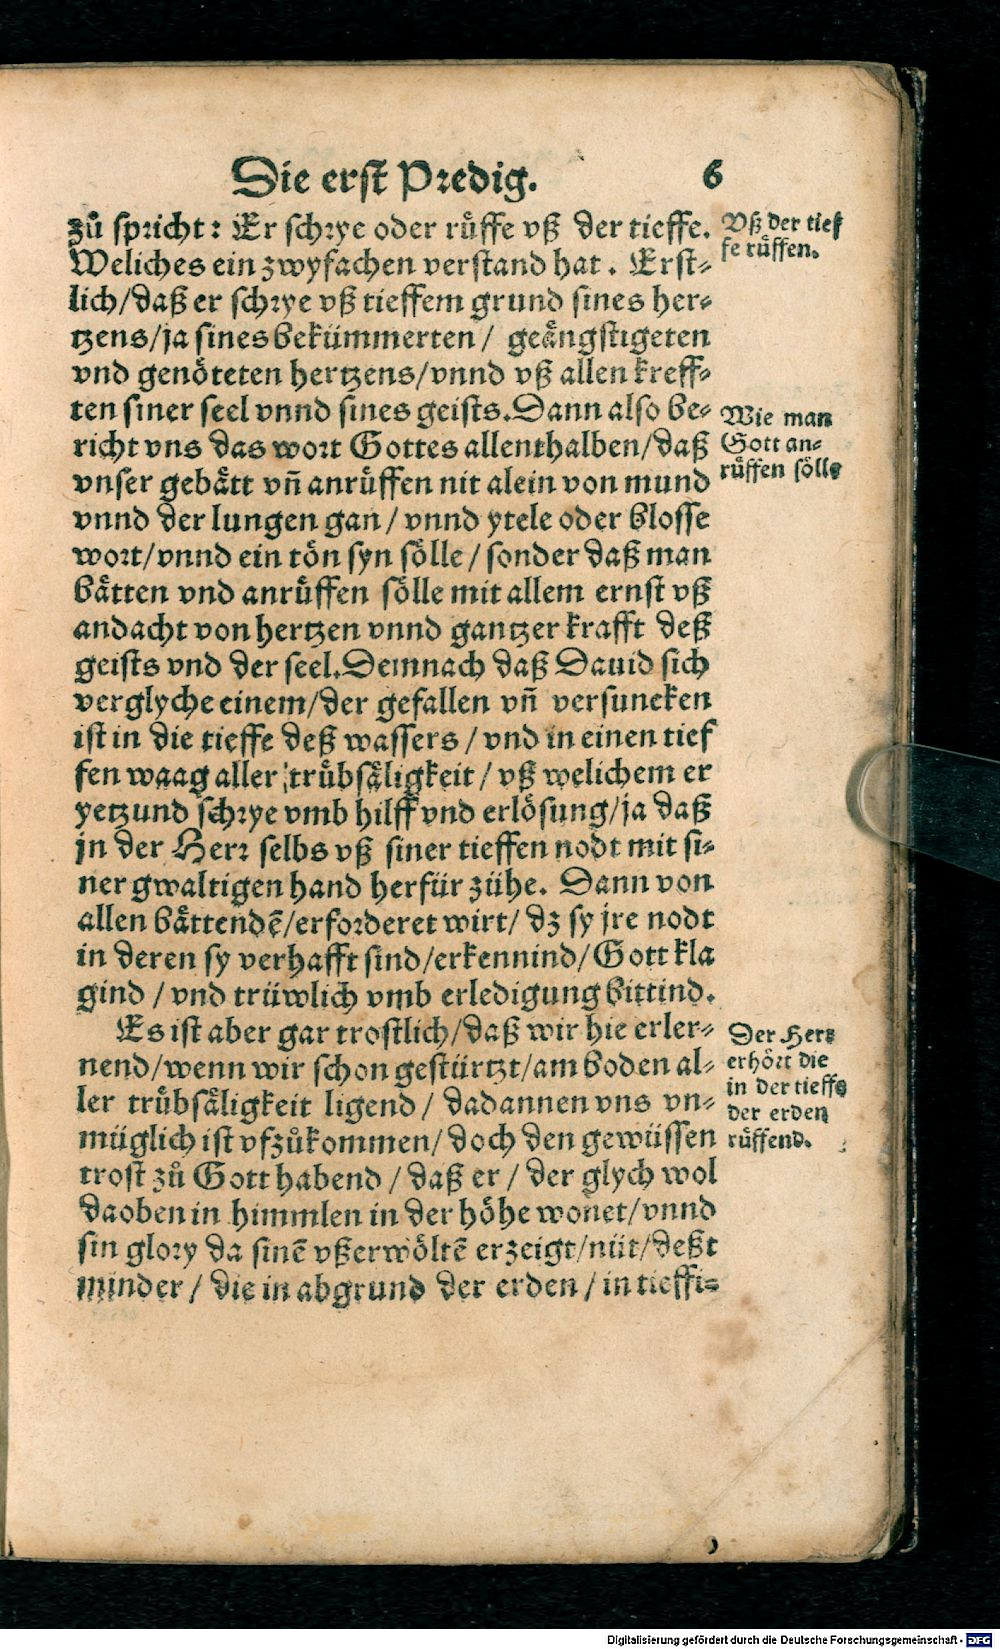 Die erst Predig. 6
zů spricht: Er schrye oder růffe vß der tieffe.
Weliches ein zwyfachen verstand hat. Erst-
lich/daß er schrye vß tieffem grund sines her-
tzens/ja sines bekümmerten/ geängstigeten
vnd genöteten hertzens/vnnd vß allen kreff-
ten siner seel vnnd sines geists. Dann also be-
richt vns das wort Gottes allenthalben/daß
vnser gebätt vñ anrüffen nit alein von mund
vnnd der lungen gan/ vnnd ytele oder blosse
wort/vnnd ein tön syn sölle/sonder daß man
bätten vnd anrüffen sölle mit allem ernst vß
andacht von hertzen vnnd gantzer krafft deß
geists vnd der seel. Demnach daß Dauid sich
verglyche einem/der gefallen vñ versuncken
ist in die tieffe deß wassers/vnd in einen tief
fen waag aller trübsäligkeit/vß welichem er
yetzund schrye vmb hilff vnd erlösung/ja daß
jn der Herr selbs vß siner tieffen nodt mit si-
ner gwaltigen hand herfür zühe. Dann von
allen bättendẽ/erforderet wirt/dz sy jre nodt
in deren sy verhafft sind/erkennind/Gott kla
gind/vnd trüwlich vmb erledigung bittind.
Es ist aber gar trostlich/daß wir hie erler-
nend/wenn wir schon gestürtzt/am boden al-
ler trübsäligkeit ligend/ dadannen vns vn-
müglich ist vfzůkommen/doch den gewüssen
trost zů Gott habend/daß er/der glych wol
daoben in himmlen in der höhe wonet/vnnd
sin glory da sinẽ vßerwöltẽ erzeigt/nüt/deßt
minder/ die in abgrund der erden/in tieffi-
Vß der tief
fe rüffen.
Wie man
Gott an-
rüffen sölle
Der Herr
erhört die
in der tieffe
der erden
rüffend.
Digitalisierung gefördert durch die Deutsche Forschungsgemeinschaft - DFG